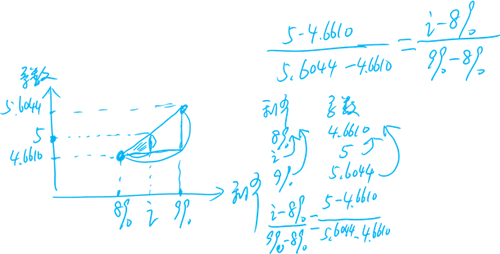 5-4.6610 / 5.6044-4.6610 = i-8% / 9%-8%
系数
5.6044
5
4.6610
8% i 9%
利率
利率 系数
8% 4.6610
i 5
9% 5.6044
i-8% / 9%-8% = 5-4.6610 / 5.6044-4.6610